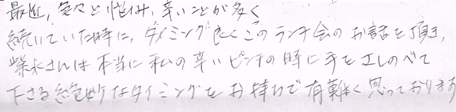 最近,色々と悩み,辛いことが多く
続いていた時に,タイミング良くこのランチ会のお話を頂き,
さんは本当に私の辛いピンチの時に手を差しのべて
下さる絶妙なタイミングをお持ちで有難く思っております